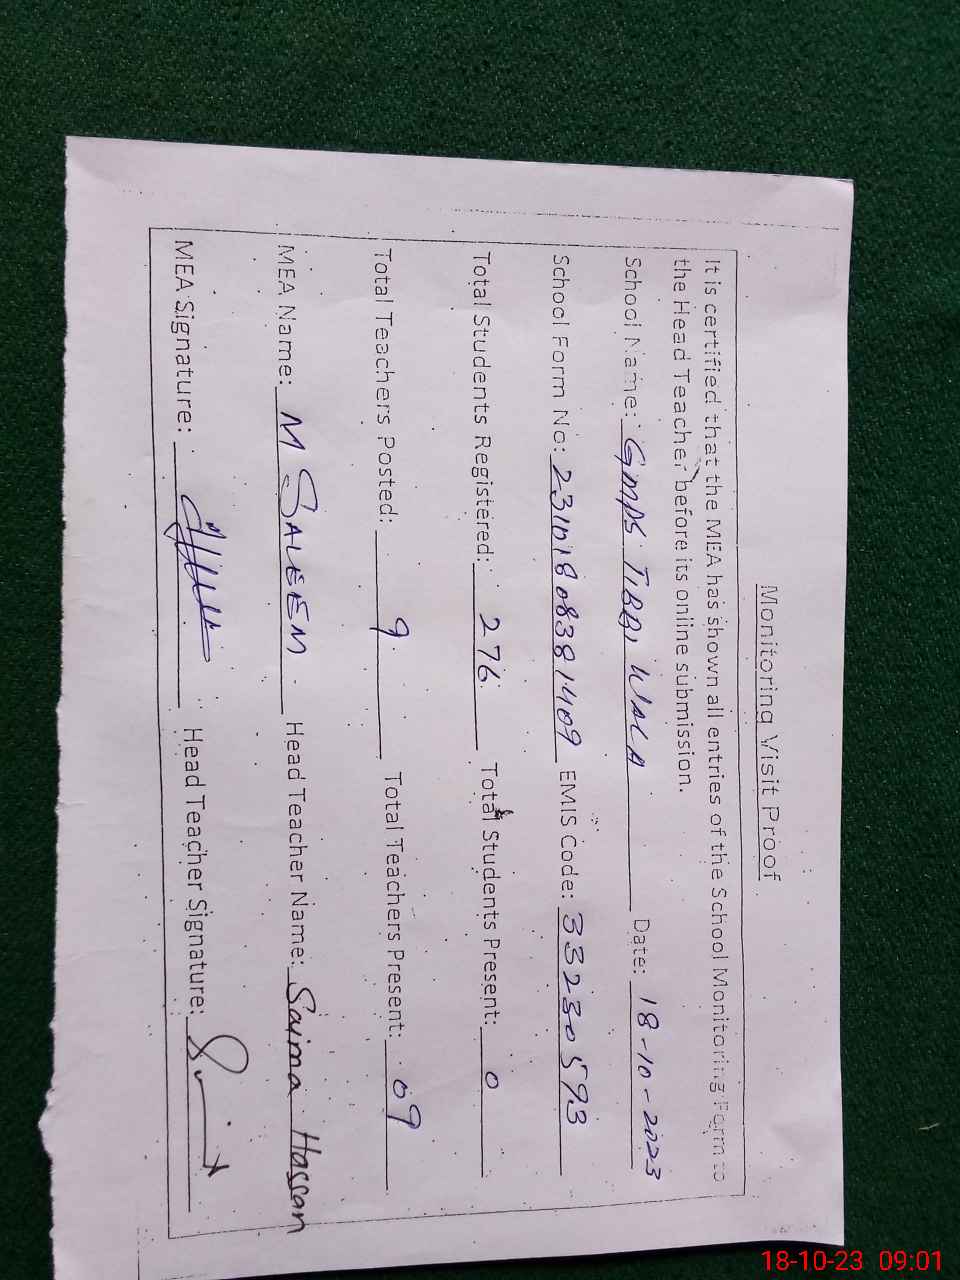 Monitoring Visit Proof
It is certified that the MEA has shown all entries of the School Monitoring Form to
the Head Teacher before its online submission.
School Name: GMPS TIBBI WALA Date: 18-10-2023
School Form No: 23101808381409 EMIS Code: 33230593
Total Students Registered: 276 Total Students Present: 0
Total Teachers Posted: 9 Total Teachers Present: 09
MEA Name: M SALEEM Head Teacher Name: Saima Hassan
MEA Signature: Head Teacher Signature:
18-10-23 09:01